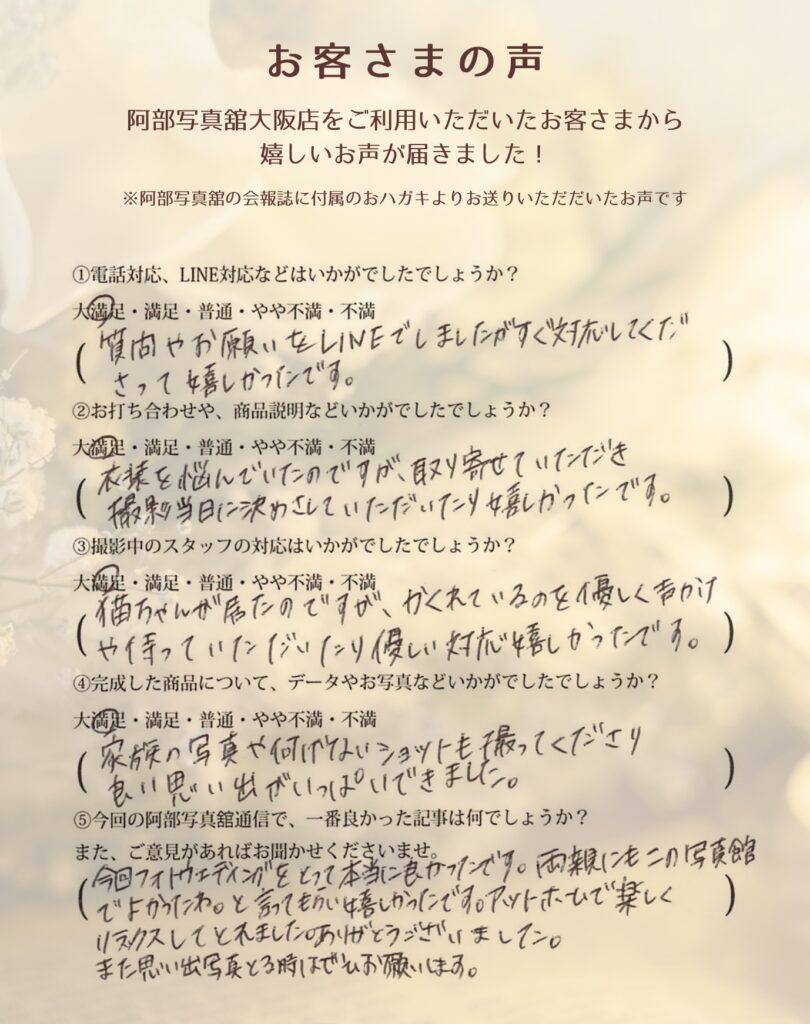 お客さまの声
阿部写真舘大阪店をご利用いただいたお客さまから
嬉しいお声が届きました！
※阿部写真舘の会報誌に付属のおハガキよりお送りいただだいたお声です
①電話対応、LINE対応などはいかがでしたでしょうか？
大満足・満足・普通・やや不満・不満
(質問やお願いをLINEでしましたがすぐ対応してくだ
さって嬉しかったです。)
②お打ち合わせや、商品説明などいかがでしたでしょうか？
大満足・満足・普通・やや不満・不満
(衣装を悩んでいたのですが、取り寄せていただき
撮影当日に決めさしていただいたり嬉しかったです。)
③撮影中のスタッフの対応はいかがでしたでしょうか？
大満足・満足・普通・やや不満・不満
(猫ちゃんが居たのですが、かくれているのを優しく声かけ
や待っていただいたり優しい対応嬉しかったです。)
④完成した商品について、データやお写真などいかがでしたでしょうか？
大満足・満足・普通・やや不満・不満
(家族の写真や何げないショットも撮ってくださり
良い思い出がいっぱいできました。)
⑤今回の阿部写真舘通信で、一番良かった記事は何でしょうか？
また、ご意見があればお聞かせくださいませ。
(今回フォトウエディングをとって本当に良かったです。両親にもこの写真館
でよかったわ。と言ってもらい嬉しかったです。アットホームで楽しく
リラックスしてとれました。ありがとうございました。)
また思い出写真とる時はぜひお願いします。